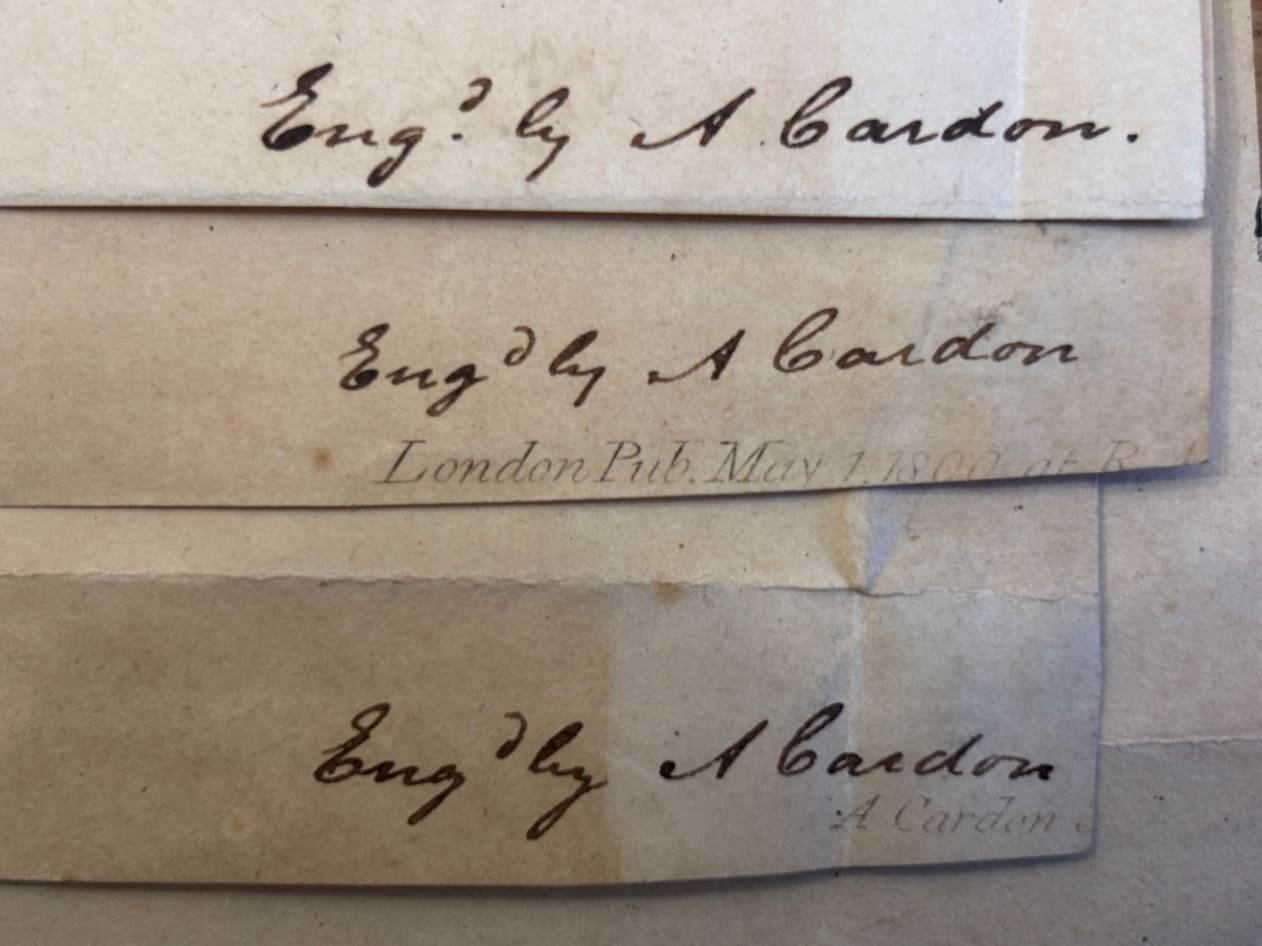 Eng.d by A Cardon.
Engd by A Cardon
London Pub. May 1. 1800 at R
Engd by A Cardon
A Cardon